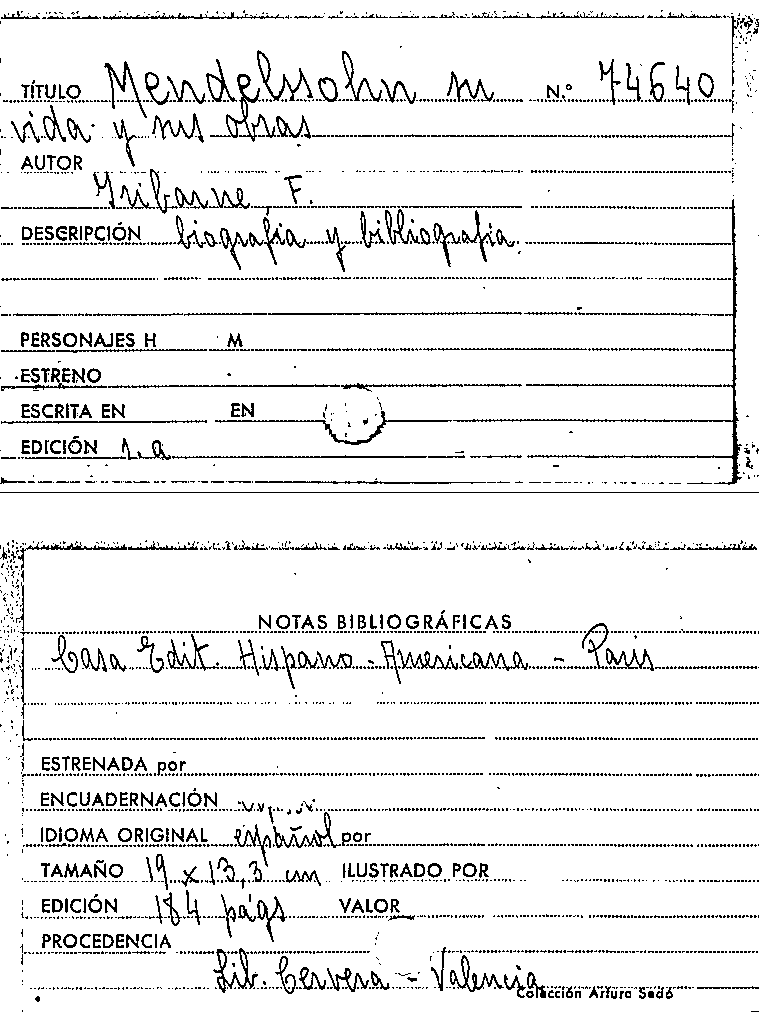 TÍTULO Mendelssohn su N.º 74640
vida y sus obras
AUTOR
Iribarne, F.
DESCRIPCIÓN biografia y bibliografia.
PERSONAJES H M
ESTRENO
ESCRITA EN EN
EDICIÓN 1.a
NOTAS BIBLIOGRÁFICAS
Casa Edit. Hispano-Americana - Paris
ESTRENADA por
ENCUADERNACIÓN
IDIOMA ORIGINAL español por
TAMAÑO 19 x 13,3 cm ILUSTRADO POR
EDICIÓN 184 págs VALOR
PROCEDENCIA
Lib. Cervera - Valencia
Colección Arturo Sedó